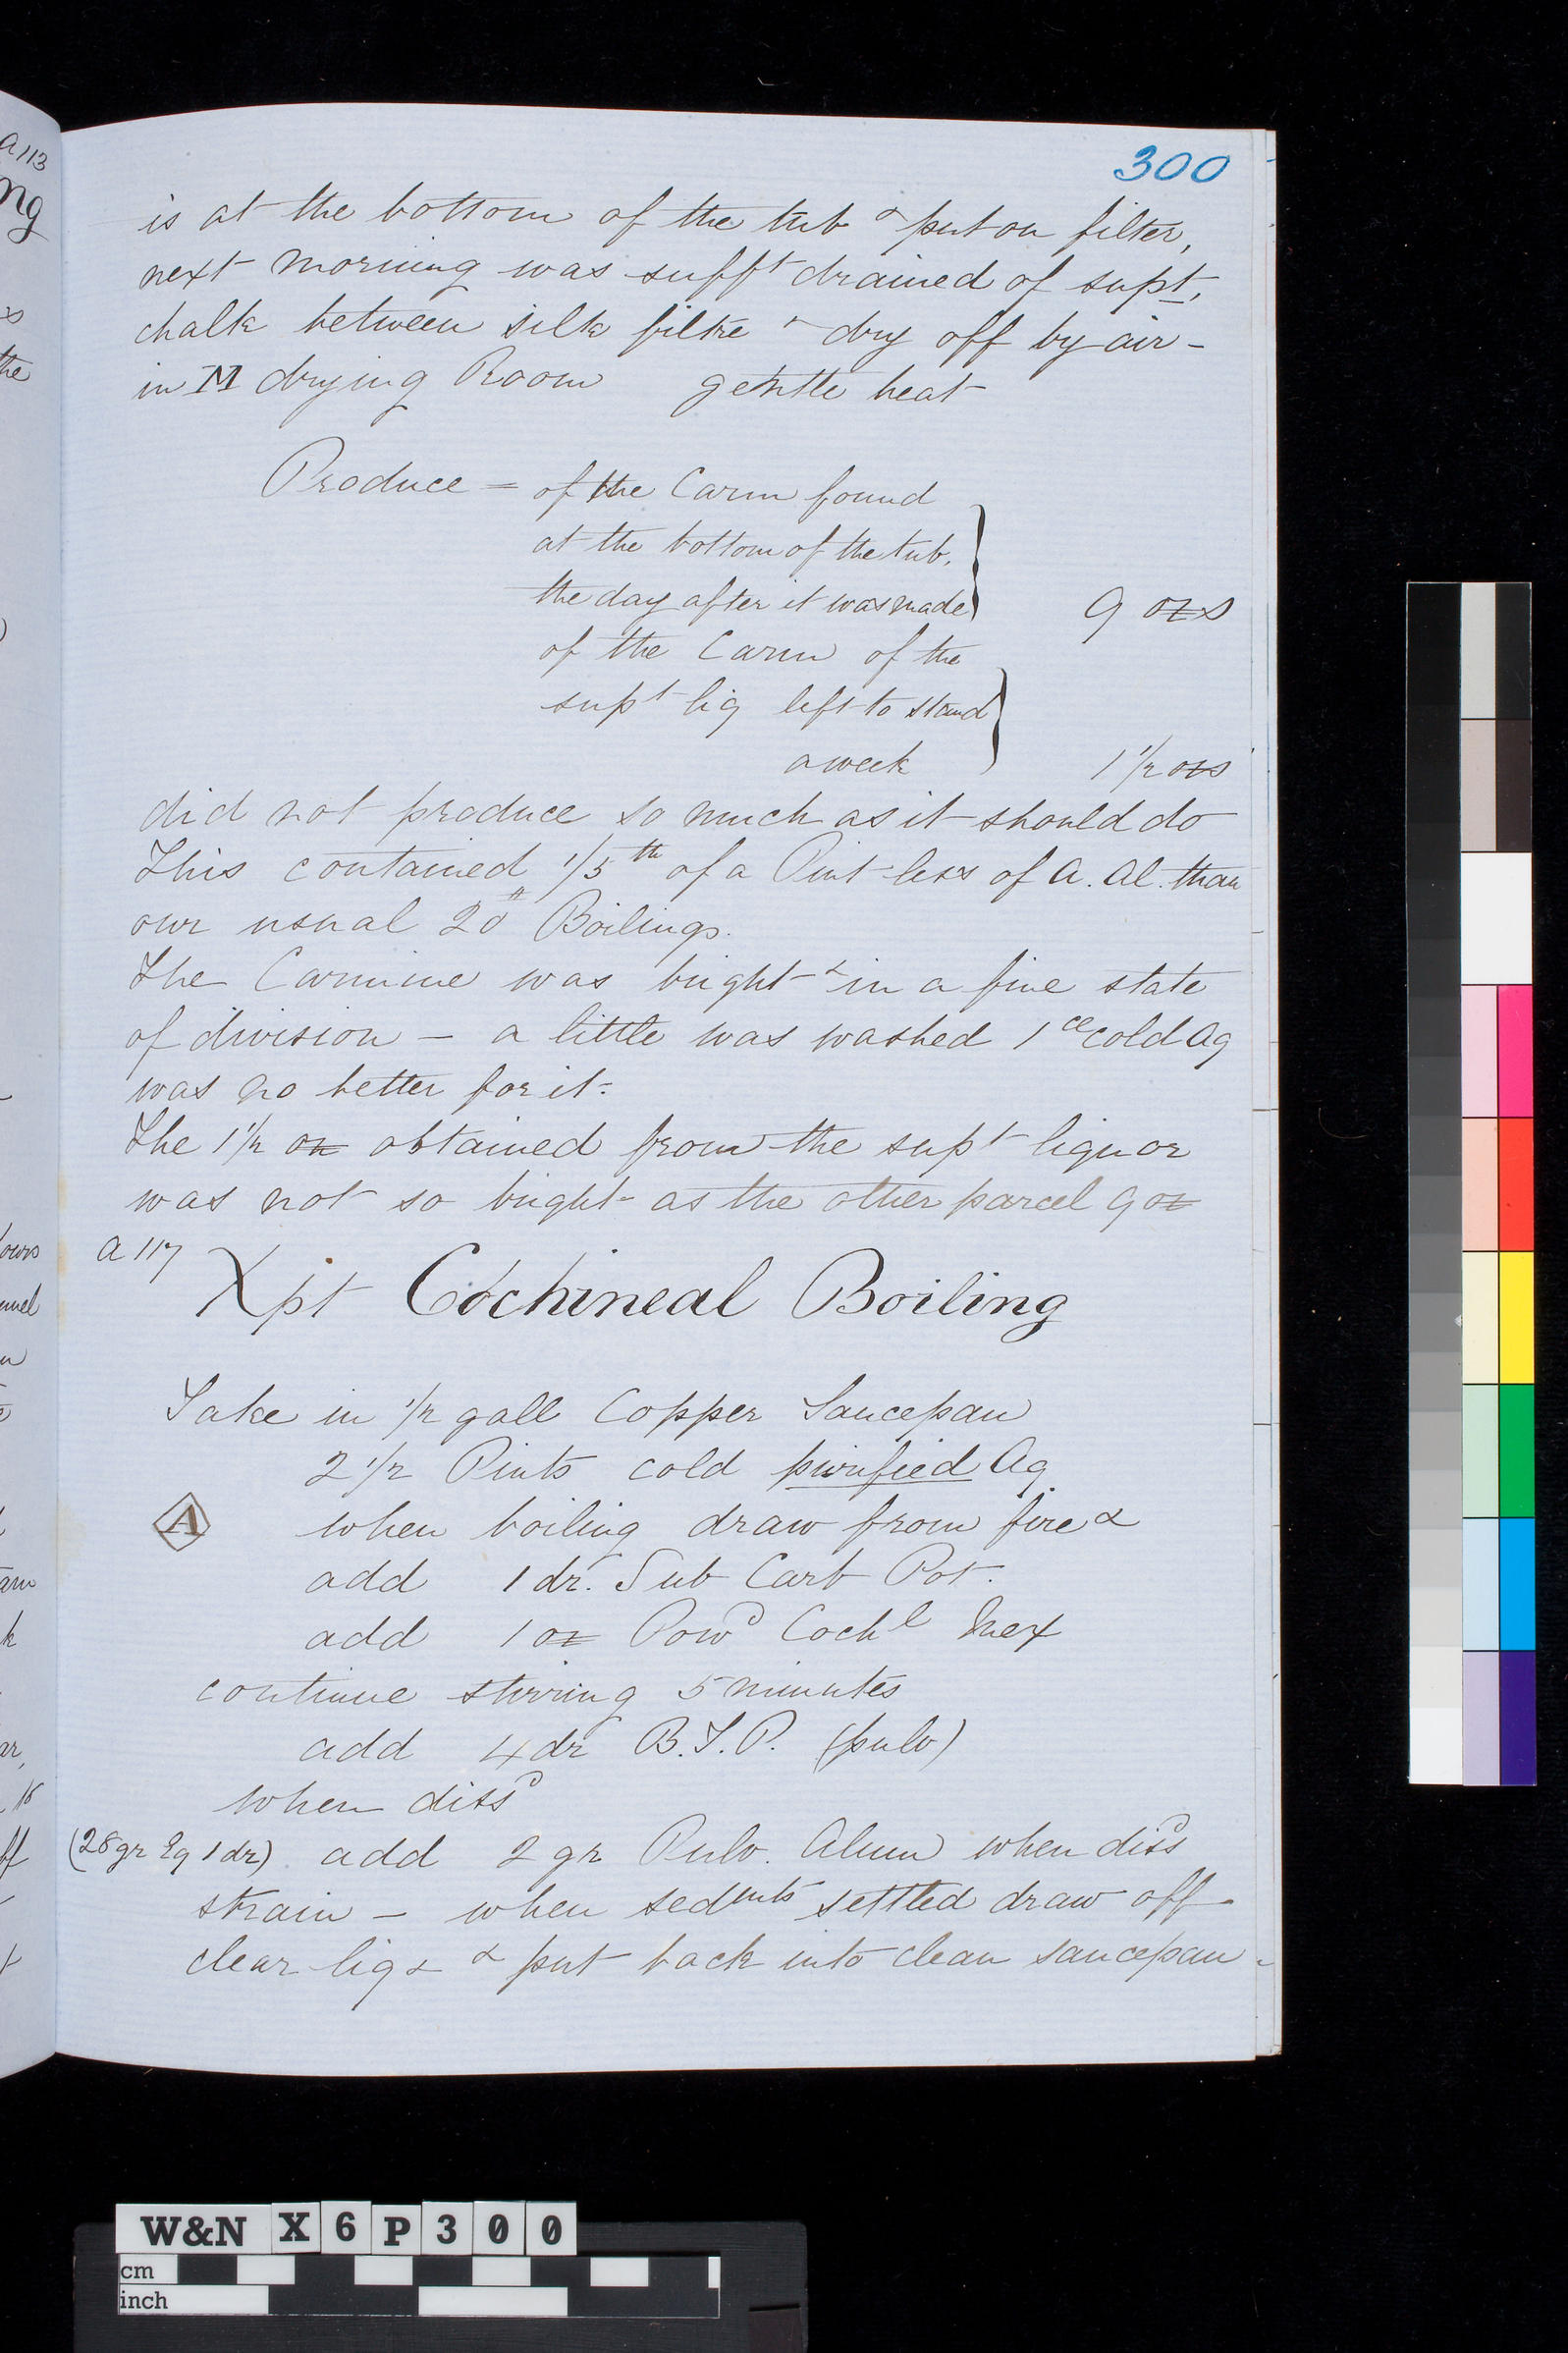 300
is at the bottom of the tub & put on filter,
next morning was sufft drained of supt,
chalk between silk filtre & dry off by air -
in M drying Room gentle heat
Produce = of the Carm found
at the bottom of the tub,
the day after it was made } 9 ozs
of the Carm of the
supt liq left to stand
a week } 1 1/2 ozs
did not produce so much as it should do
This contained 1/5th of a Pint less of A. Al. than
our usual 20" Boilings.
The Carmine was bright & in a fine state
of division - a little was washed 1ce cold Aq
was no better for it.
The 1 1/2 oz obtained from the supt liquor
was not so bright as the other parcel 9 oz
A 117
Xpt Cochineal Boiling
Take in 1/2 gall Copper Saucepan
2 1/2 Pints cold purified Aq
A when boiling draw from fire &
add 1 dr. Sub Carb Pot.
add 1 oz Powd Cochl Mex
continue stirring 5 minutes
add 4 dr B.T.P. (pulv)
when dissd
(28 gr Eq 1 dr) add 2 gr Pulv. Alum when dissd
strain - when sedmts settled draw off
clear liq & & put back into clean saucepan -
W&N X6P300
cm
inch